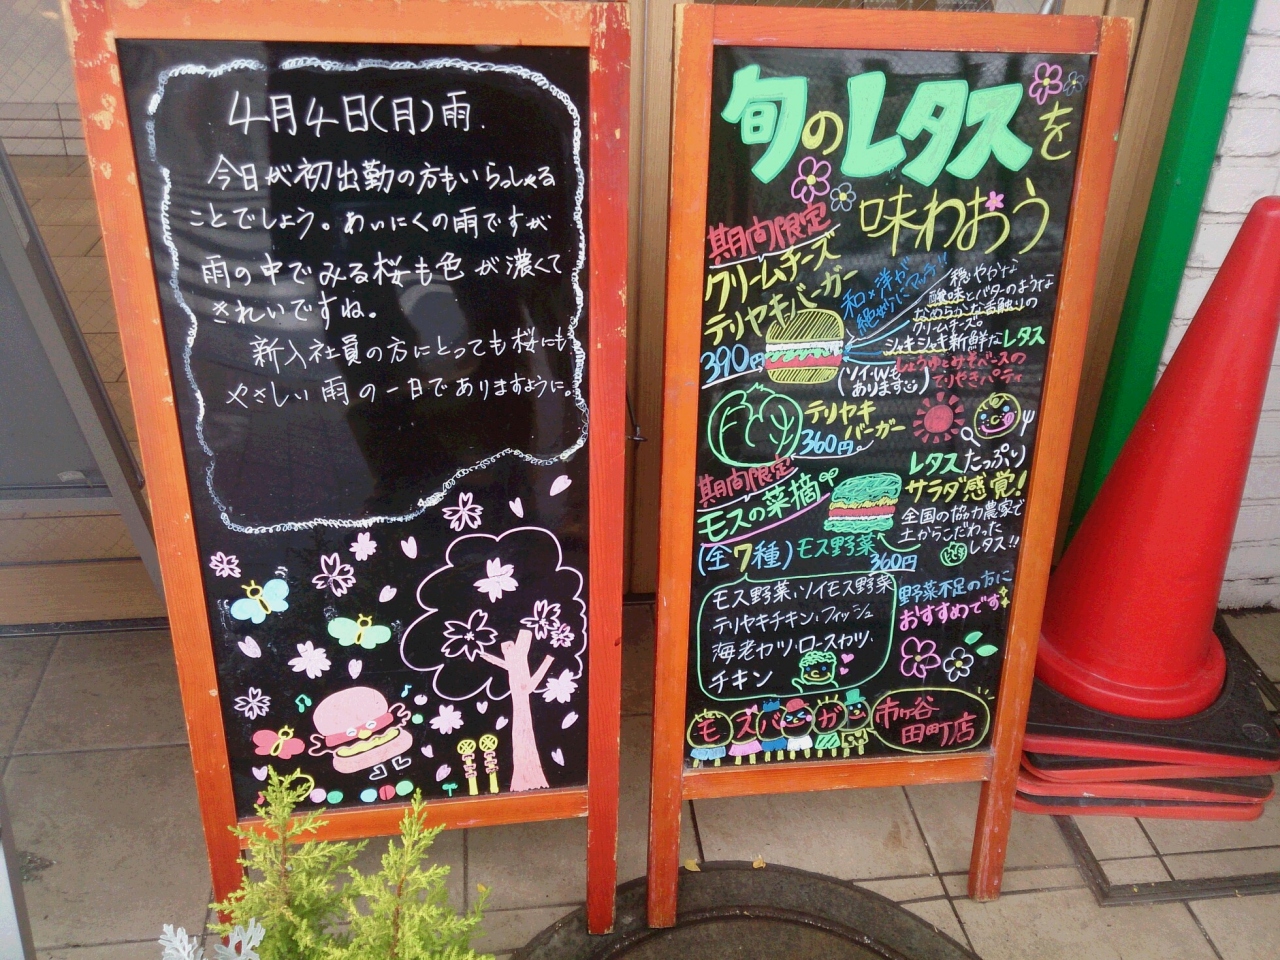 4月4日(月)雨.
今日が初出勤の方もいらっしゃる
ことでしょう。あいにくの雨ですが
雨の中でみる桜も色が濃くて
きれいですね。
新入社員の方にとっても桜にも
やさしい雨の一日でありますように。
旬のレタスを
味わおう
期間限定
クリームチーズ
テリヤキバーガー
390円
和×洋が
絶妙にマッチ!!
穏やかな
酸味とバターのような
なめらかな舌触りの
クリームチーズ。
シャキシャキ新鮮なレタス
しょうゆとみそベースの
てりやきパティ
(ソイ・Wも
あります)
テリヤキ
バーガー
360円
期間限定
モスの菜摘
(全7種)モス野菜
360円
レタスたっぷり
サラダ感覚!
全国の協力農家で
土からこだわった
レタス!!
モス野菜、ソイモス野菜
テリヤキチキン・フィッシュ
海老カツ・ロースカツ・
チキン
野菜不足の方に
おすすめです
モスバーガー
市ヶ谷
田町店